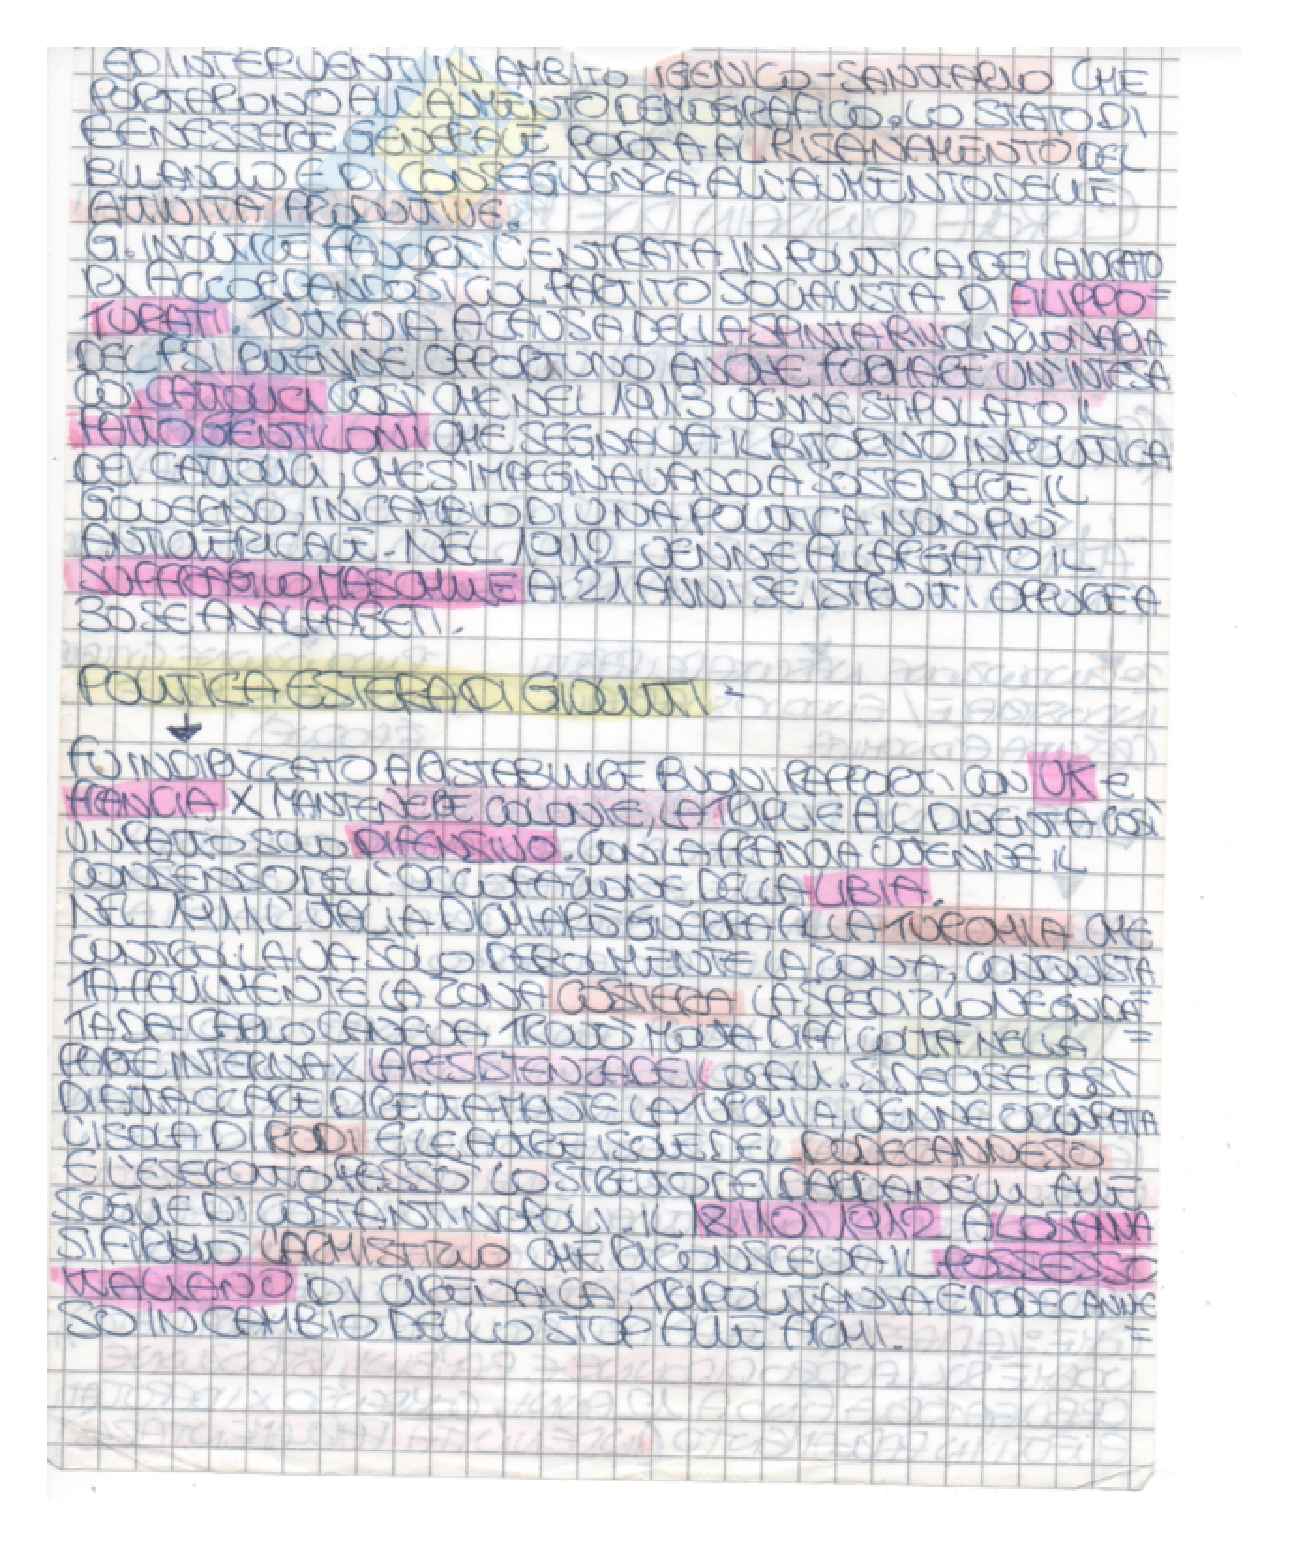 ED INTERVENTI IN AMBITO IGENICO-SANITARIO CHE
PORTARONO ALL'AUMENTO DEMOGRAFICO. LO STATO DI
BENESSERE GENERALE PORTA AL RISANAMENTO DEL
BILANCIO E DI CONSEGUENZA ALL'AUMENTO DELLE
ATTIVITÀ PRODUTTIVE.
G. INOLTRE ADOPT CENTRATA IN POLITICA DEI LAVORATO
RI ACCORDANDOSI COL PARTITO SOCIALISTA DI FILIPPO=
TURATI. TUTTAVIA A CAUSA DELLA SPINTA RIVOLUZIONARIA
DEL PSI RITENNE OPPORTUNO ANCHE FORMARE UN'INTESA
COI CATTOLICI COSÌ CHE NEL 1913 VENNE STIPULATO IL
PATTO GENTILONI CHE SEGNAVA IL RITORNO IN POLITICA
DEI CATTOLICI, CHE S'IMPEGNAVANO A SOSTENERE IL
GOVERNO, IN CAMBIO DI UNA POLITICA NON PIÙ
ANTICLERICALE. NEL 1912 VENNE ALLARGATO IL
SUFFRAGIO MASCHILE AI 21 ANNI SE ISTRUITI OPPURE A
30 SE ANALFABETI.
POLITICA ESTERA DI GIOLITTI -
FU INDIRIZZATO A RISTABILIRE BUONI RAPPORTI CON UK e
FRANCIA X MANTENERE COLONIE, LA TRIPLICE ALL. DIVENTA COSÌ
UN PATTO SOLO DIFENSIVO. CON LA FRANCIA OTTENNE IL
CONSENSO DELL'OCCUPAZIONE DELLA LIBIA.
NEL 1911 L'ITALIA DICHIARÒ GUERRA ALLA TURCHIA CHE
CONTROLLAVA SOLO DEBOLMENTE LA ZONA, CONQUISTA
TA FACILMENTE LA ZONA COSTIERA LA SPEDIZIONE GUIDA=
TA DA CARLO CANEVA TROVÒ MOLTA DIFFICOLTÀ NELLA =
PARTE INTERNA X LA RESISTENZA DEI LOCALI. SI DECISE COSÌ
DI ATTACCARE DIRETTAMENTE LA TURCHIA. VENNE OCCUPATA
L'ISOLA DI RODI E LE ALTRE ISOLE DEL DODECANNESO
E L'ESERCITO PASSÒ LO STRETTO DEI DARDANELLI ALLE
SOGLIE DI COSTANTINOPOLI. IL 18/10/1912 A LOSANNA
SI FIRMÒ L'ARMISTIZIO CHE RICONOSCEVA IL POSSESSO
ITALIANO DI CIRENAICA, TRIPOLITANIA E DODECANNE
SO IN CAMBIO DELLO STOP ALLE ARMI. =